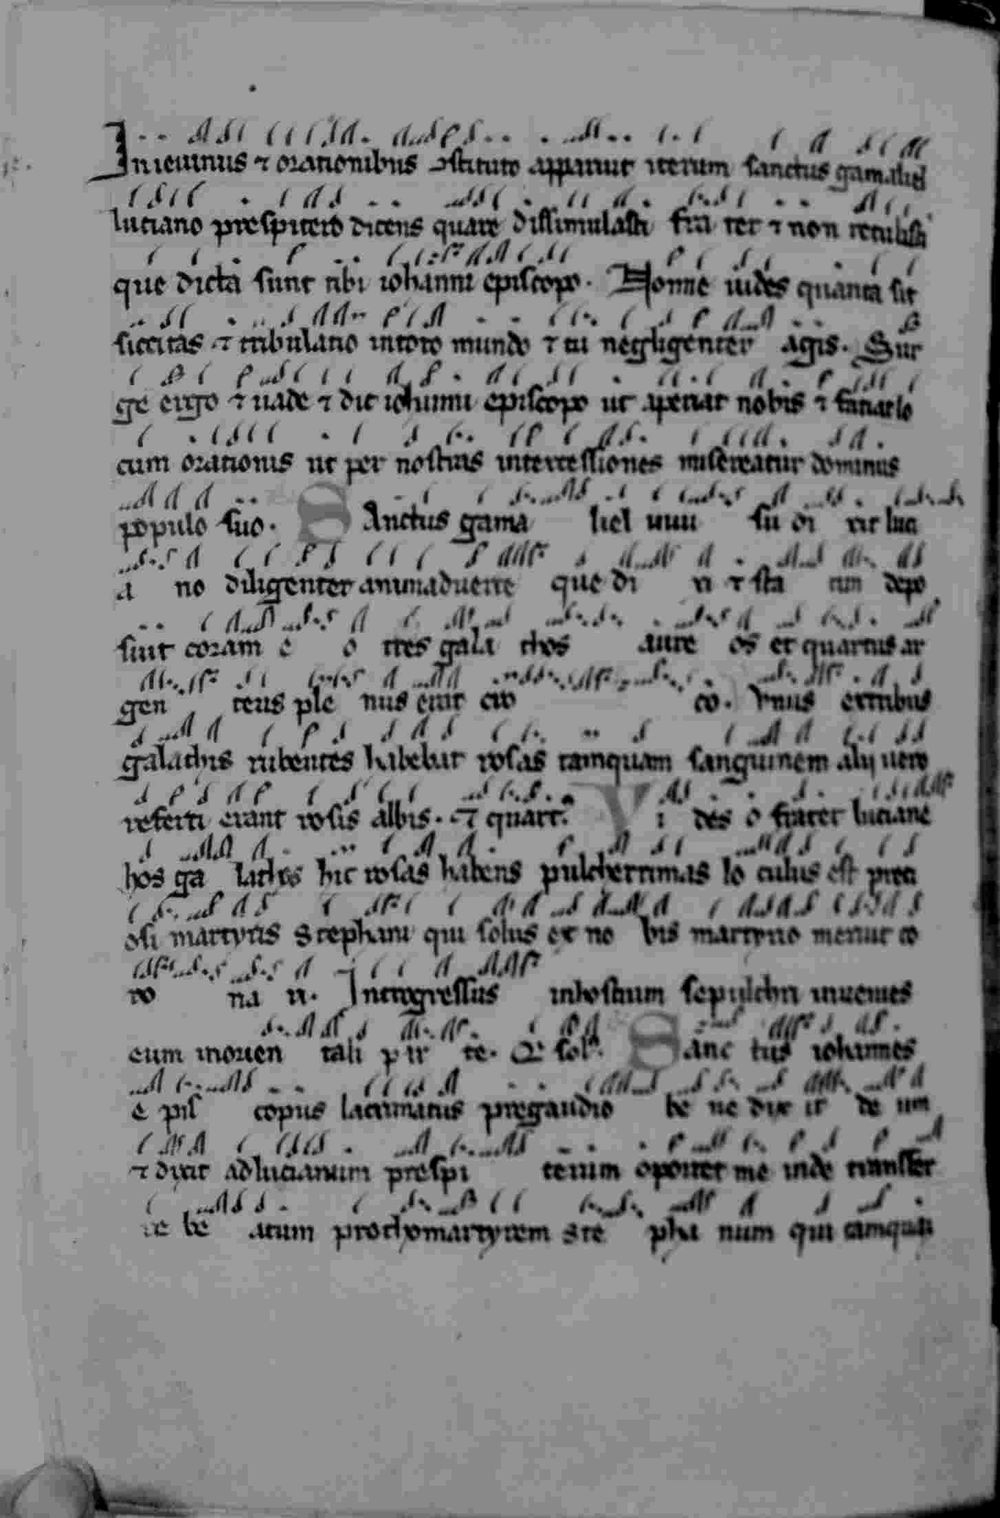 In ieiuniis ⁊ orationibus ɔstituto apparuit iterum sanctus gamaliel
luciano prespitero dicens quare dissimulasti fra ter ⁊ non retulisti
que dicta sunt tibi iohanni episcopo. Nonne uides quanta sit
siccitas ⁊ tribulatio intoto mundo ⁊ tu negligenter agis. Sur
ge ergo ⁊ uade ⁊ dic iohanni episcopo ut aperiat nobis ⁊ faciat lo
cum orationis ut per nostras intercessiones misereatur dominus
populo suo. SAnctus gama liel uiui su di xit luci
a no diligenter animaduerte que di xi ⁊ sta tim depo
suit coram e o tres gala thos aure os et quartus ar
gen teus ple nus erat cro co. Vnus extribus
galathis rubentes habebat rosas tamquam sanguinem alij uero
referti erant rosis albis. ⁊ quart. Vi des o frater luciane
hos ga lathos hic rosas habens pulcherrimas lo culus est preci
osi martyris Stephani qui solus ex no bis martyrio meruit co
ro na ri. Introgressus inhostium sepulchri inuenies
eum inorien tali par te. Qr sol. Sanc tus iohannes
e pis copus lacrimatus pregaudio be ne dix it de um
⁊ dixit adlucianum prespi terum oportet me inde transfer
re be atum prothomartyrem Ste pha num qui tamquam